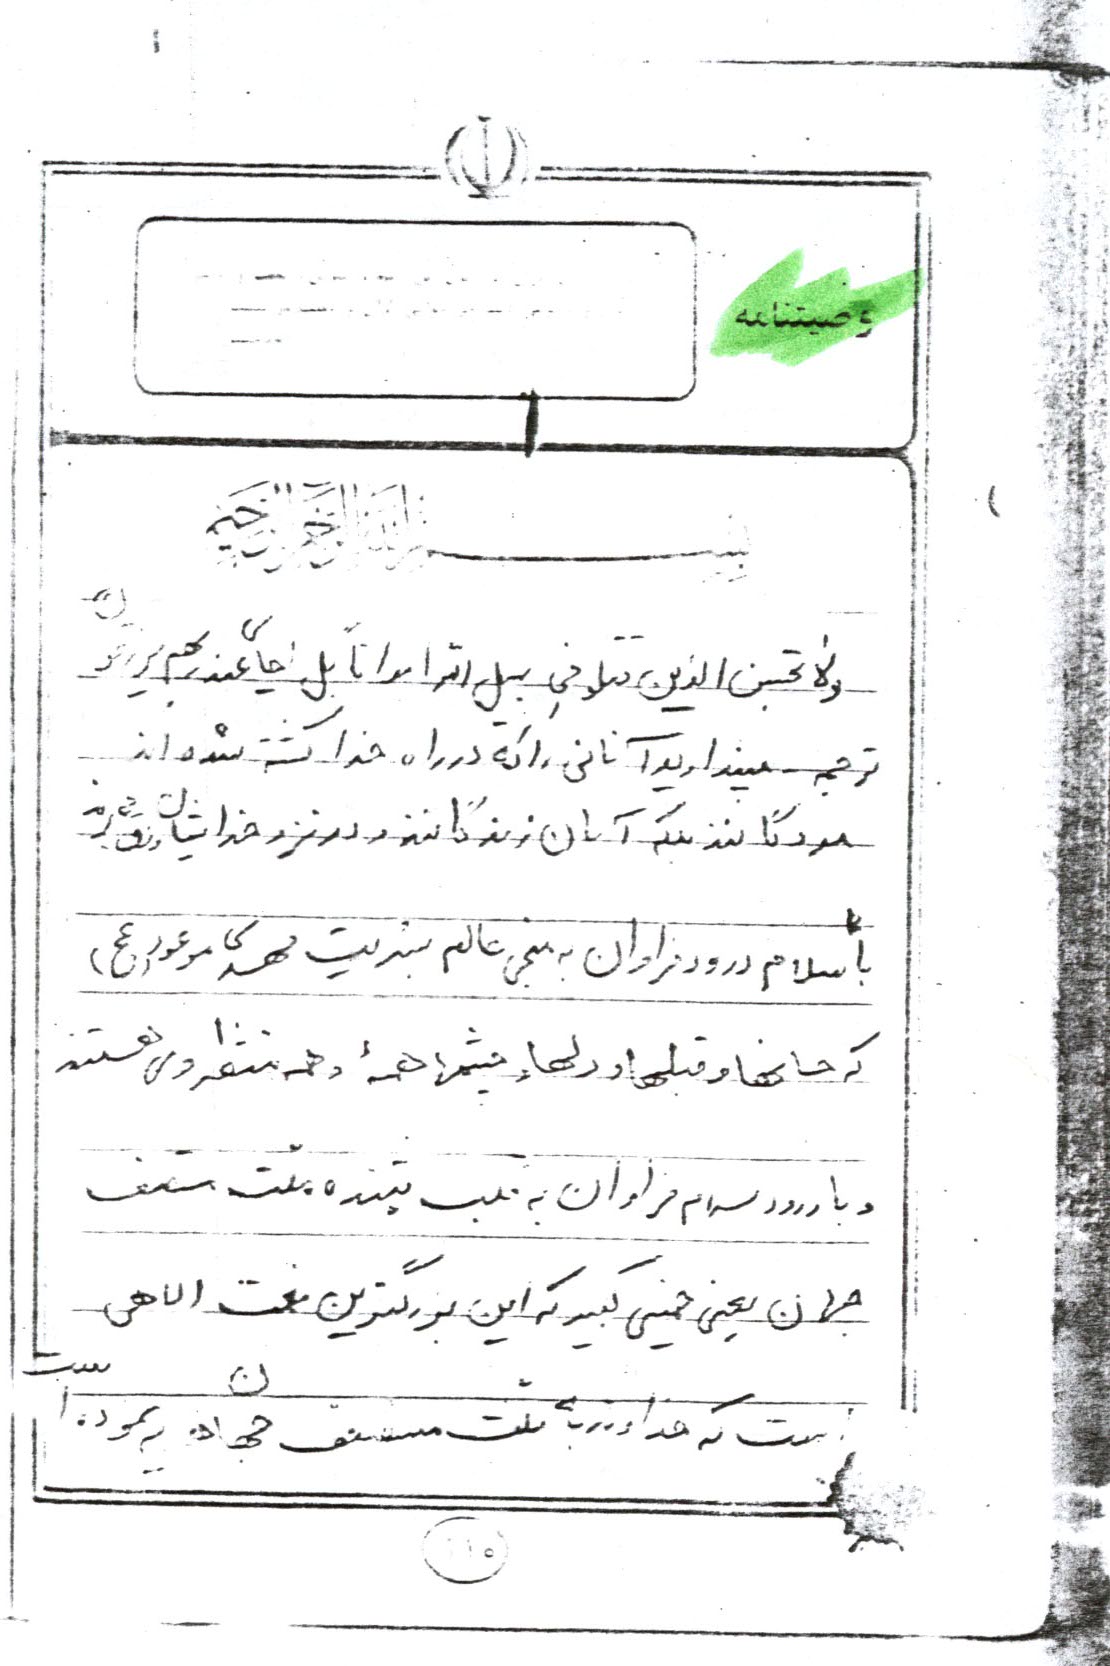 وصیتنامه
بسم الله الرحمن الرحیم
ولا تحسبن الذین قتلو فی سبیل الله امواتاً بل احیاءً عند ربهم یرزقون
ترجمه مپندارید آنانی را که در راه خدا کشته شده اند
مردگانند بلکه آنان زندگانند و در نزد خدایشان روزی می برند
با سلام درود فراوان به منجی عالم بشریت مهدی موعود (عج)
که جانها و قبلها و دلها چشمها همهٔ و همه منتظر وی هستند
و با درود سلام فراوان به قلب تپنده ملت مستضعف
جهان یعنی خمینی کبیر که این بزرگترین نعمت الاهی
است که خداوند با ملت مستضعف جهان نموده است
۱۱۰